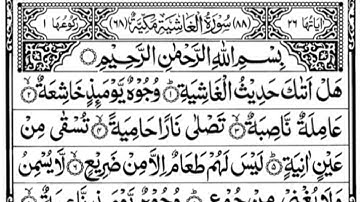 اٰیَاتُهَا ٢٦ (٨٨) سُوْرَةُ الْغَاشِیَةِ مَكِّیَّةٌ (٦٨) رُكُوْعُهَا ١
بِسْمِ اللّٰهِ الرَّحْمٰنِ الرَّحِیْمِ
هَلْ اَتٰىكَ حَدِیْثُ الْغَاشِیَةِ ۝١ وُجُوْهٌ یَّوْمَىِٕذٍ خَاشِعَةٌ ۝٢
عَامِلَةٌ نَّاصِبَةٌ ۝٣ تَصْلٰى نَارًا حَامِیَةً ۝٤ تُسْقٰى مِنْ
عَیْنٍ اٰنِیَةٍ ۝٥ لَیْسَ لَهُمْ طَعَامٌ اِلَّا مِنْ ضَرِیْعٍ ۝٦ لَّا یُسْمِنُ
وَلَا یُغْنِیْ مِنْ جُوْعٍ ۝٧ وُجُوْهٌ یَّوْمَىِٕذٍ نَّاعِمَةٌ